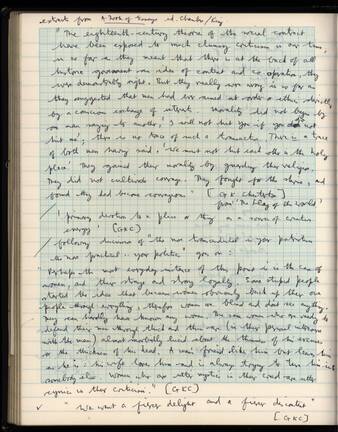 extracts from A Book of Essays ed.
" The eighteenth-century theories of the social contract
have been exposed to much clumsy criticism in our time;
in so far as they meant that there is at the back of all
historic government an idea of content and co-operation, they
were demonstrably right. But they really were wrong in so far as
they suggested that men had ever aimed at order or ethics directly
by a conscious exchange of interests. Morality did not begin by
one man saying to another, 'I will not hit you if you do not
hit me'; there is no trace of such a transaction. There is a trace
of both men having said, 'We must not hit each other in the holy
place.' They gained their morality by guarding their religion.
They did not cultivate courage. They fought for the shrine, and
found they had become courageous." [GK Chesterton]
from
'primary devotion to a place or thing is a source of creative
energy' [GKC]
following discussion of "the more transcendental is your patriotism
the more practical is your politics" goes on:
"Perhaps the most everyday instance of this point is in the case of
women; and their strong and strange loyalty. Some stupid people
started the idea that because women obviously back up their own
people through everything, therefore women are blind and do not see anything.
They can hardly have known any women. The same women who are ready to
defend their men through thick and thin are (in their personal intercourse
with the man) almost morbidly lucid about the thinness of his excuses
or the thickness of his head. A man's friend likes him but leaves him
as he is: his wife loves him and is always trying to turn him into
somebody else. Women who are utter mystics in their creed are utter
cynics in their criticism." [GKC]
"We want a fiercer delight and a fiercer discontent"
[GKC]